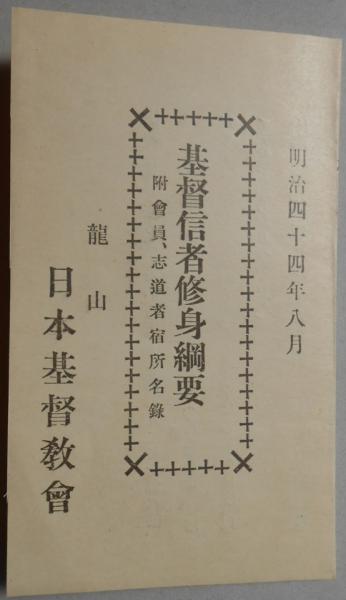 明治四十四年八月
基督信者修身綱要
附會員、志道者宿所名錄
龍山
日本基督敎會